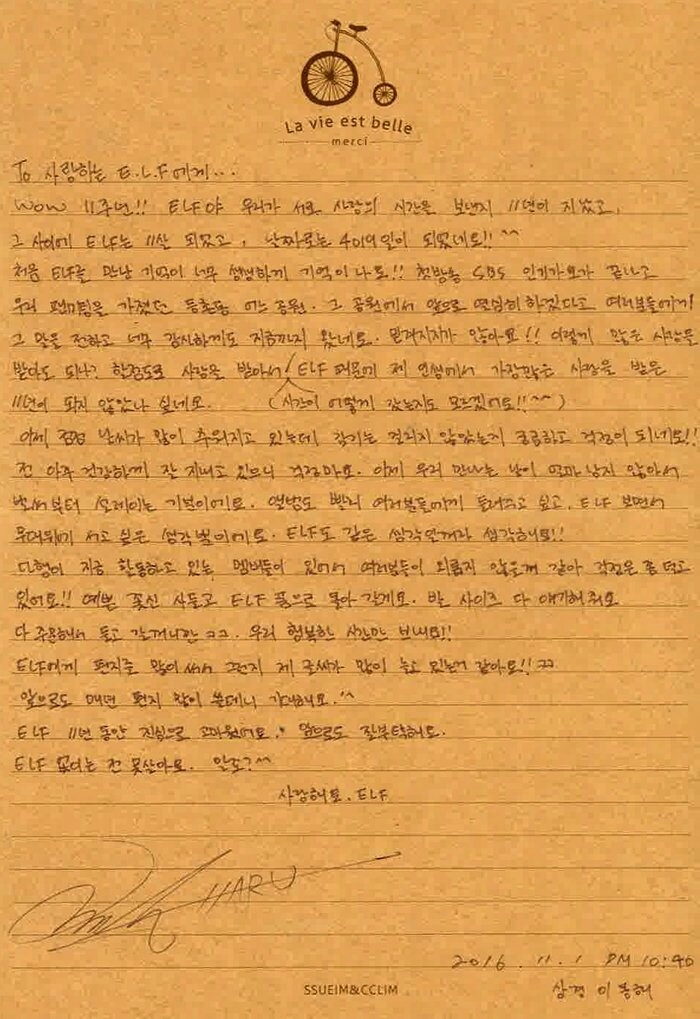 La vie est belle
merci
To 사랑하는 E.L.F에게...
WOW 11주년!! ELF야 우리가 서로 사랑의 시간을 보낸지 11년이 지났고,
그 사이에 ELF는 11살 되었고, 날짜로는 4019일이 되었네요!! ^^
처음 ELF를 만난 기억이 너무 생생하게 기억이 나요!! 첫방송 SBS 인기가요가 끝나고
우리 팬미팅을 가졌던 등촌동 어느 공원. 그 공원에서 앞으로 열심히 하겠다고 여러분들에게
그 말을 전하고 너무 감사하게도 지금까지 왔네요. 믿겨지지가 않아요!! 이렇게 많은 사랑을
받아도 되나? 할정도로 사랑을 받아서! ELF 때문에 제 인생에서 가장많은 사랑을 받은
11년이 되지 않았나 싶네요. (시간이 어떻게 갔는지도 모르겠어요!! ^^)
이제 점점 날씨가 많이 추워지고 있는데 감기는 걸리지 않았는지 궁금하고 걱정이 되네요!!
전 아주 건강하게 잘 지내고 있으니 걱정마요. 이제 우리 만나는 날이 얼마 남지 않아서
벌써부터 설레이는 기분이에요. 앨범도 빨리 여러분들에게 들려주고 싶고, ELF 보면서
무대위에 서고 싶은 생각뿐이에요. ELF도 같은 생각일꺼라 생각해요!!
다행이 지금 활동하고 있는 멤버들이 있어서 여러분들이 외롭지 않을꺼 같아 걱정은 좀 덜고
있어요!! 예쁜 꽃신 사들고 ELF 품으로 돌아 갈게요. 발 사이즈 다 얘기해줘요
다 주문해서 들고 갈꺼니깐 ㅋㅋ. 우리 행복한 시간만 보내요!!
ELF에게 편지를 많이 써서 그런지 제 글씨가 많이 늘고 있는거 같아요!! ㅋㅋ
앞으로도 매년 편지 많이 쓸테니 기대해요. ^^
ELF 11년 동안 진심으로 고마웠어요. 앞으로도 잘부탁해요.
ELF 없이는 전 못살아요. 알죠? ^^
사랑해요. ELF
HARU
2016. 11. 1 PM 10:40
상경 이동해
SSUEIM&CCLIM